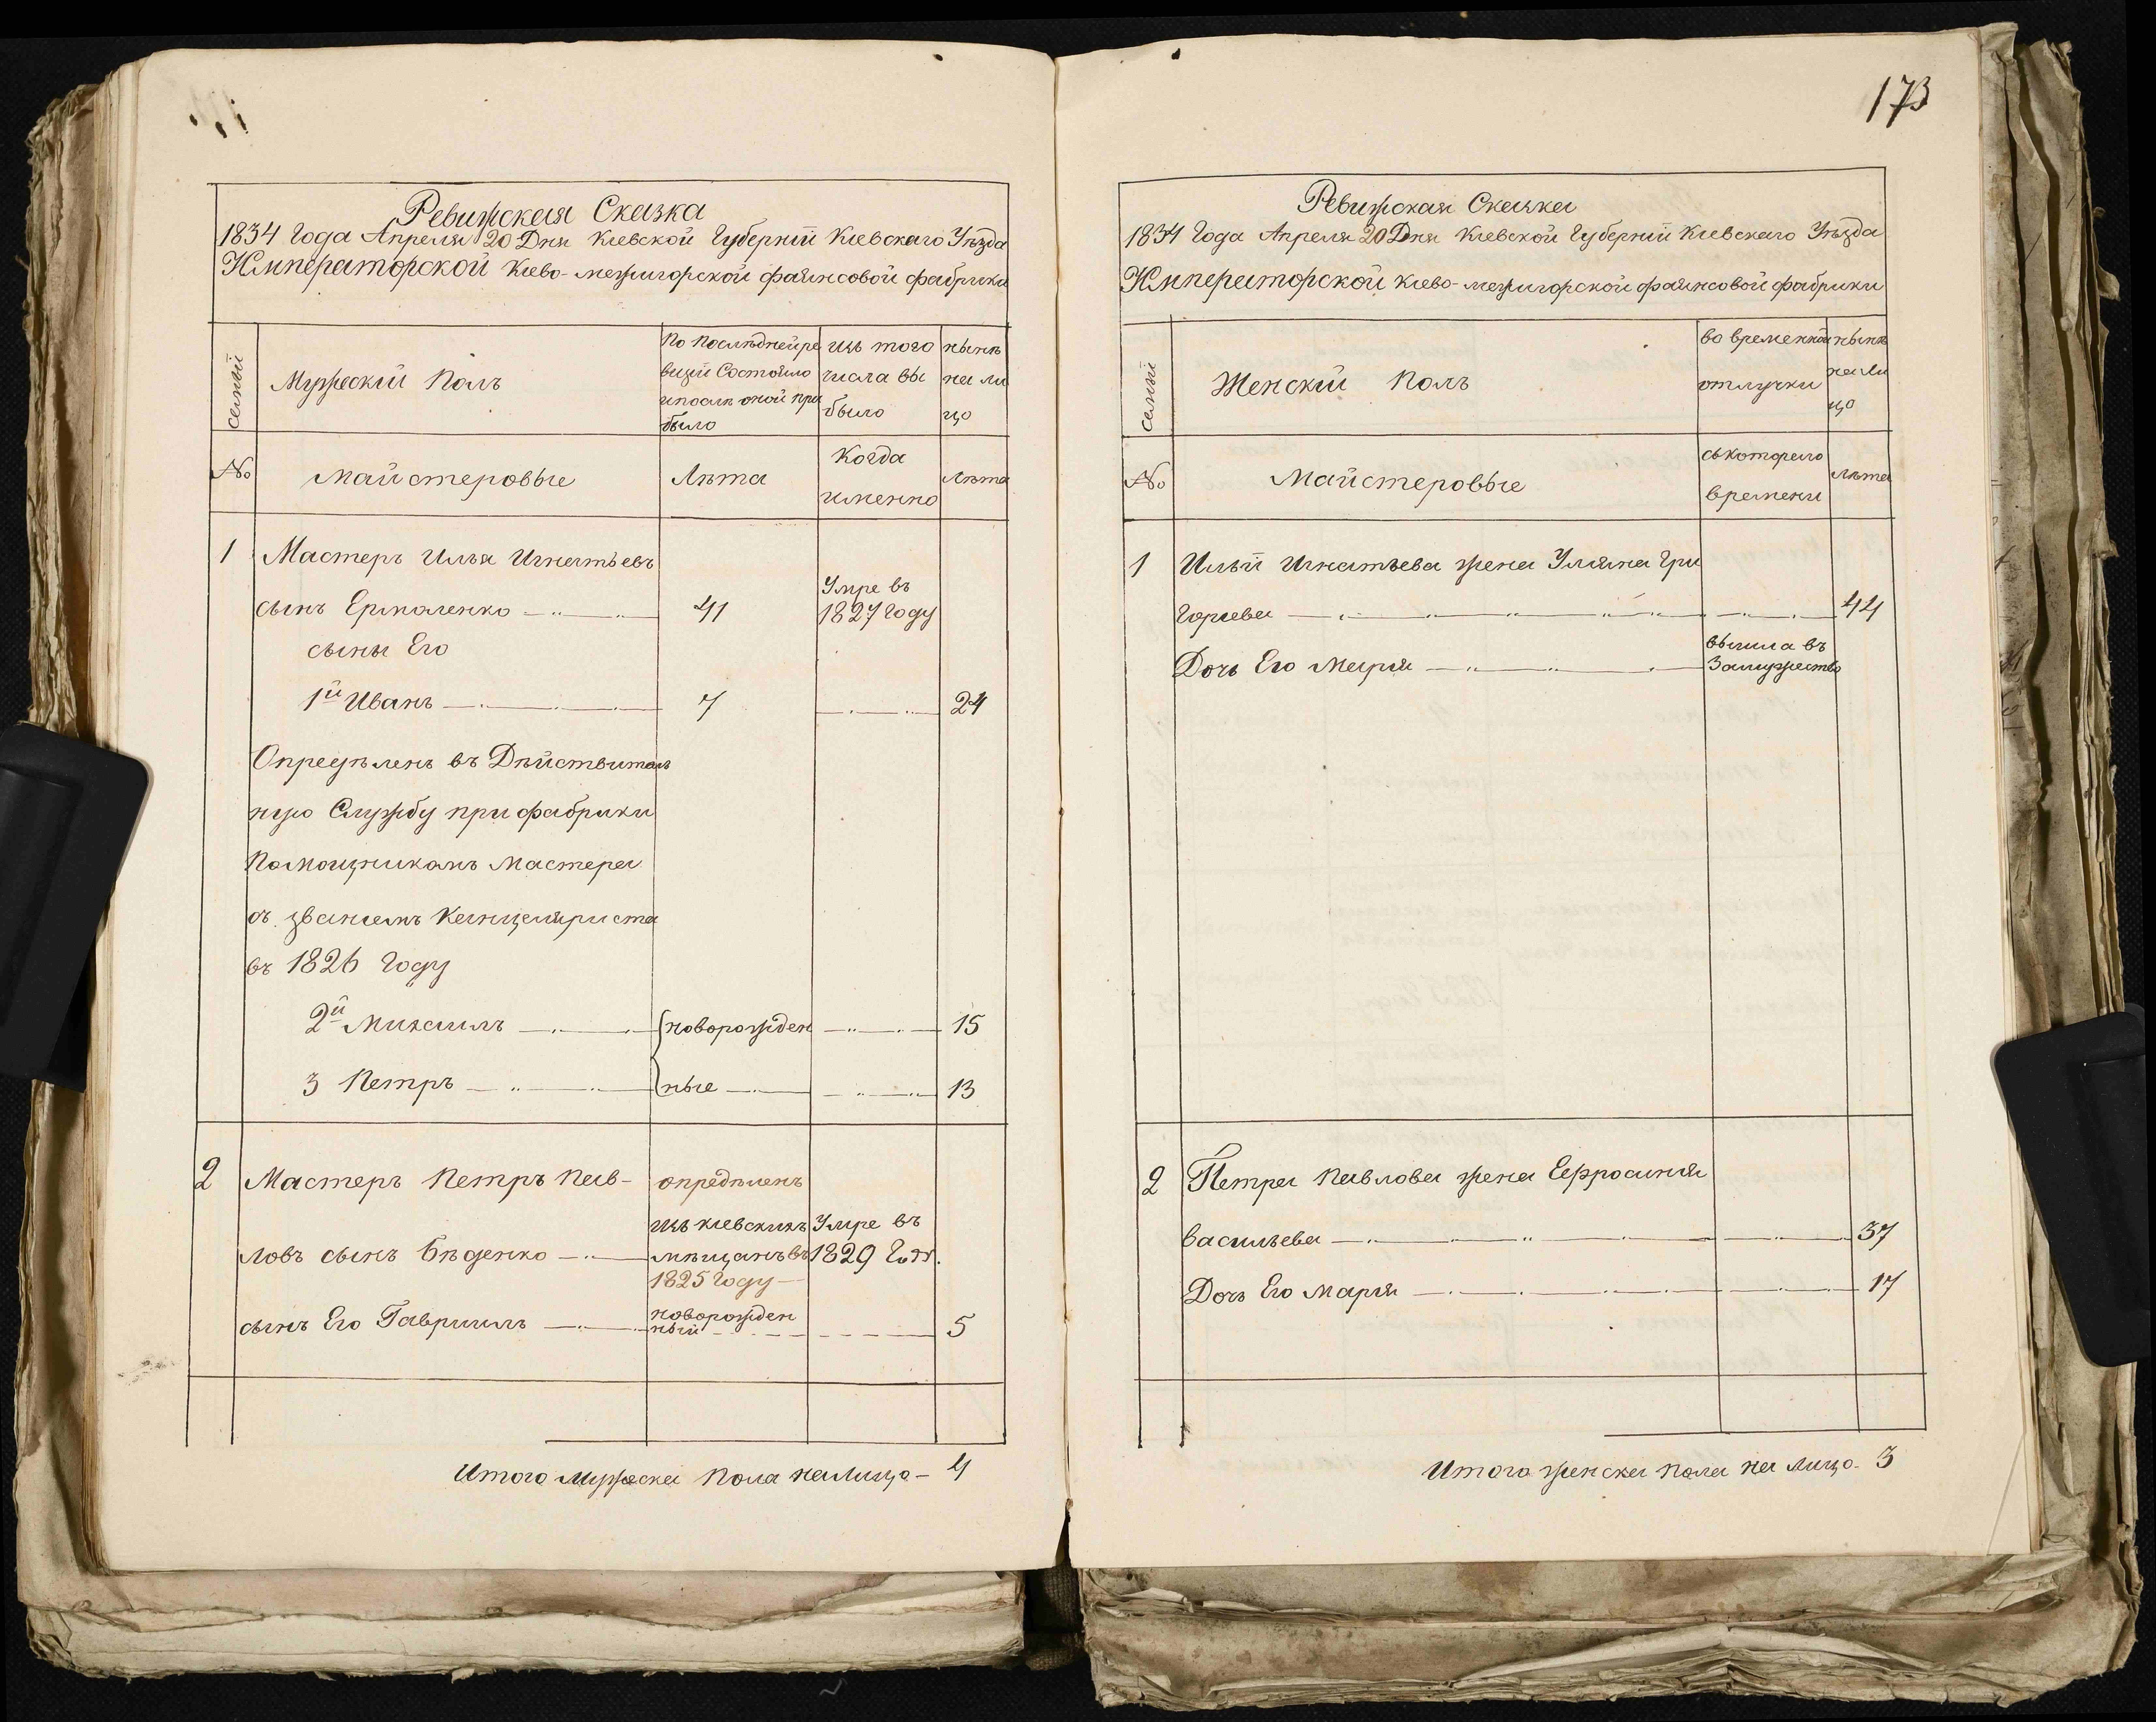 Ревижская Сказка
1834 Года Апреля 20 Дня Кіевской Губерніи Кіевскаго Уѣзда
Императорской Кіево-межигорской фаянсовой фабрики
семьи
Мужескій Полъ
По послѣдней ре
визіи Состояло
и послѣ оной при
было
изъ того
числа вы
было
нынѣ
на ли
цо
№
Майстеровые
Лѣта
Когда
именно
Лѣта
1 Мастеръ Илья Игнатьевъ
сынъ Ермоленко 41 Умре въ
1827 Году
сыны Его
1й Иванъ 7 24
Опредѣленъ въ Дѣйствитель
ную Службу при фабрики
Помощникомъ Мастера
съ званіемъ Канцеляриста
въ 1826 Году
2й Михаилъ новорожден 15
3 Петръ ные 13
2 Мастеръ Петръ Пав-
ловъ сынъ Бѣденко
опредѣленъ
изъ кіевскихъ
мѣщанъ въ
1825 Году
Умре въ
1829 Год.
сынъ Его Гавриилъ новорожден
ный 5
Итого Мужеска Пола на Лицо - 4
173
Ревижская Сказка
1834 Года Апреля 20 Дня Кіевской Губерніи Кіевскаго Уѣзда
Императорской Кіево-межигорской фаянсовой фабрики
семьи
Женскій Полъ
во временной
отлучки
нынѣ
на Ли
цо
№
Майстеровые
съ котораго
времени
Лѣта
1 Ильи Игнатьева жена Уляна Гри
горьева 44
Дочь Его Марія вышла въ
Замужество
2 Петра Павлова жена Ефросинія
Васильева 37
Дочь Его Марія 17
Итого женска пола на лицо - 3